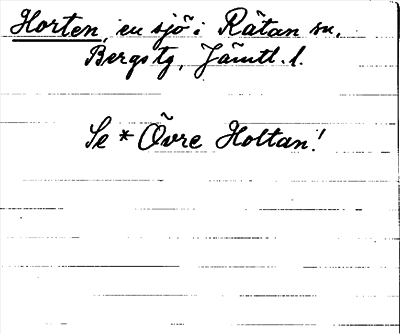 Horten, en sjö i Rätan sn.
Bergs tg, Jämtl. l.
Se * Övre Holtan!